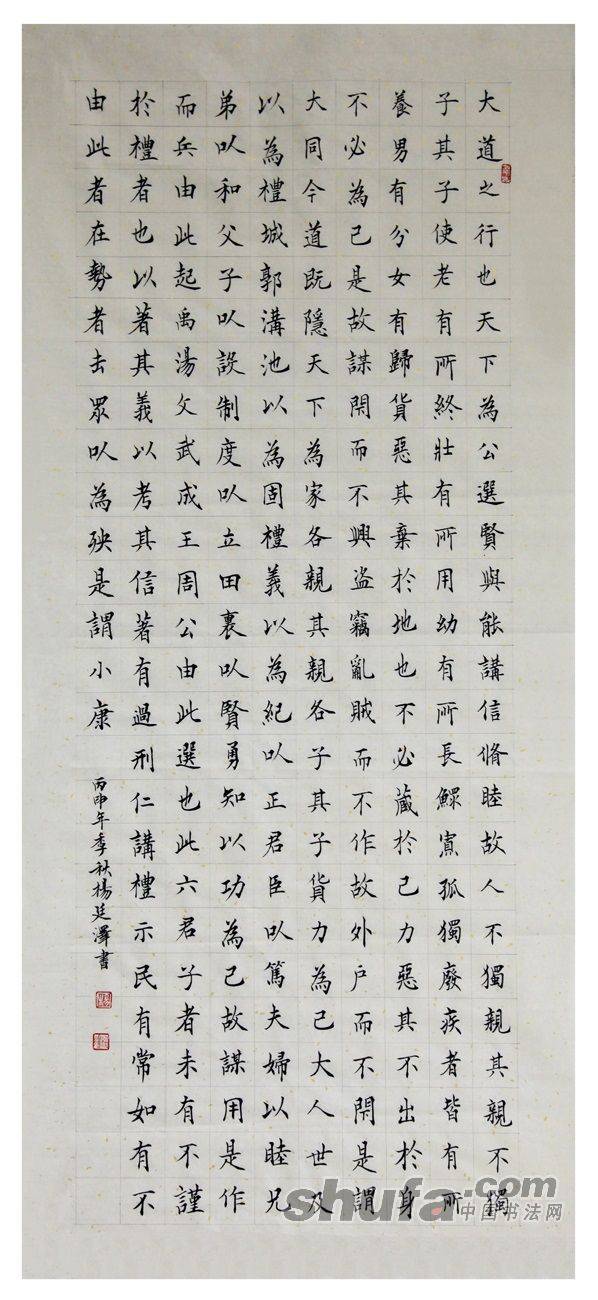 大道之行也天下為公選賢與能講信脩睦故人不獨親其親不獨
子其子使老有所終壯有所用幼有所長鰥寡孤獨廢疾者皆有所
養男有分女有歸貨惡其棄於地也不必藏於己力惡其不出於身
不必為己是故謀閉而不興盜竊亂賊而不作故外戶而不閉是謂
大同今道既隱天下為家各親其親各子其子貨力為己大人世及
以為禮城郭溝池以為固禮義以為紀以正君臣以篤夫婦以睦兄
弟以和父子以設制度以立田裏以賢勇知以功為己故謀用是作
而兵由此起禹湯文武成王周公由此選也此六君子者未有不謹
於禮者也以著其義以考其信著有過刑仁講禮示民有常如有不
由此者在勢者去眾以為殃是謂小康
丙申年季秋楊廷澤書
shufa.com
中国书法网